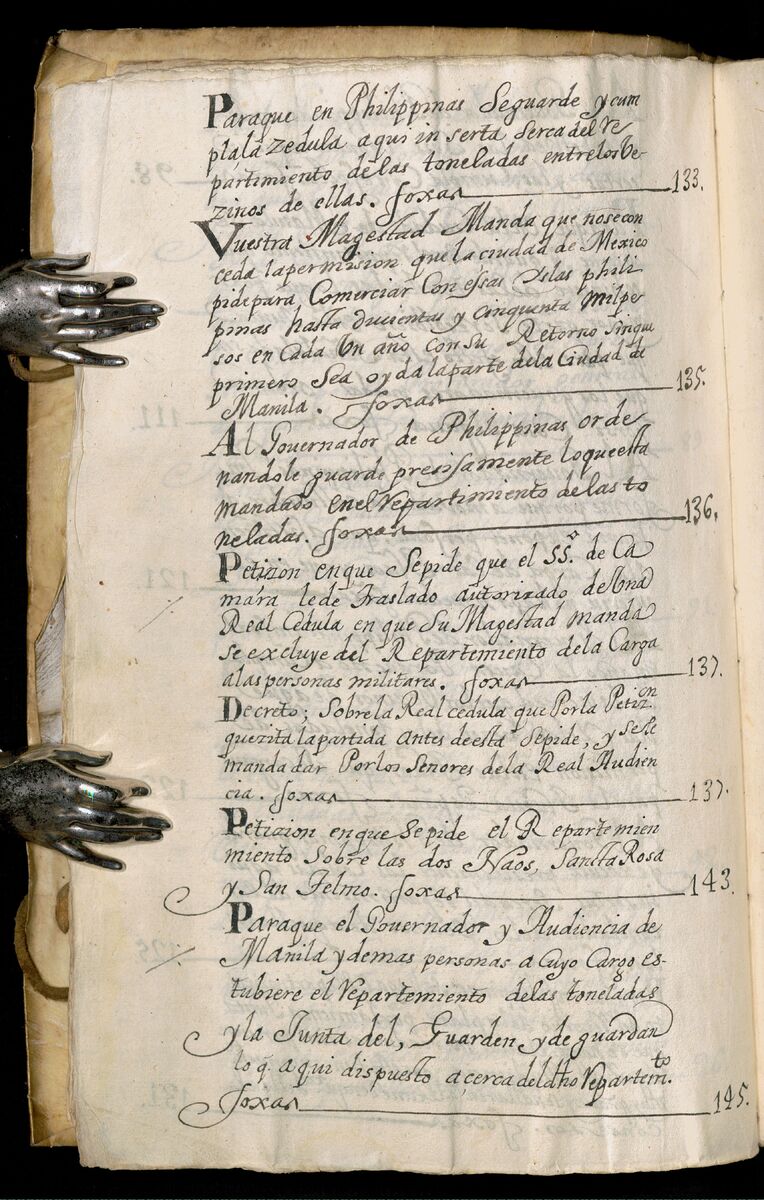 Paraque en Philippinas Seguarde y cum
plala zedula aqui in serta Serca del Re
partimiento de las toneladas entre los Ve-
zinos de ellas. foxas 133.
Vuestra Magestad Manda que nosecon
ceda lapermision que la ciudad de Mexico
pide para Comerciar Con essas Yslas phili
pinas hasta ducientas y cinquenta milpe
sos en Cada Un año con su Retorno sinque
primero Sea oyda la parte dela Ciudad de
Manila. foxas 135.
Al Governador de Philippinas orde
nandole guarde presisamente loque esta
mandado en el repartimiento de las to
neladas. foxas 136.
Petizion en que Sepide que el SSº. de Ca
mara lede Traslado autorizado de Una
Real Cedula en que Su Magestad manda
se excluye del Repartemiento dela Carga
alas personas militares. foxas 137.
Decreto; Sobre la Real cedula que Por la Petizon
que zita la partida Antes de esta Sepide, y se le
manda dar Por los Senores de la Real Audien
cia. foxas 137.
Petizion en que Sepide el Repartemien
miento Sobre las dos Naos, Sancta Rosa
y San Telmo. foxas 143.
Paraque el Governador y Audioncia de
Manila y demas personas a Cuyo Cargo es-
tubiere el repartemiento delas toneladas
y la Junta del, Guarden, y de guardan
lo q. aqui dispuesto acerca del dho repartemto.
foxas 145.